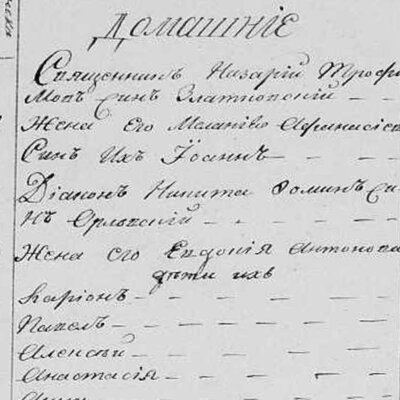 Домашніе
Священникъ Назарій Трофи
мовъ Синъ Златковскій
Жена Его Меланія Афанасіев
Синъ Ихъ Іоаннъ
Діаконъ Никита Фоминъ Си
нъ Орловскій
Жена его Евдокія Антонова
дѣти ихъ
Ларіонъ
Павелъ
Алексѣй
Анастасія